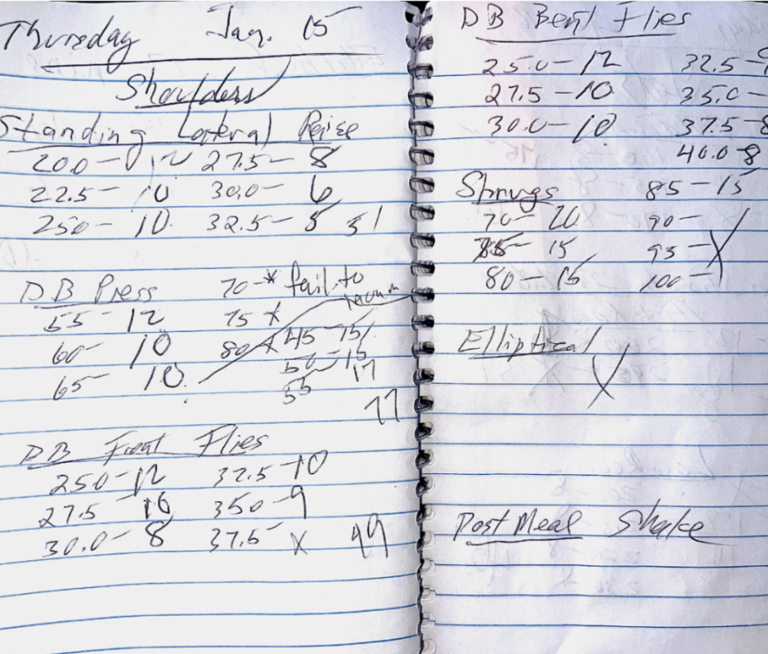 Thursday Jan. 15
Shoulders
Standing Lateral Raise
20.0 - 12 27.5 - 8
22.5 - 10 30.0 - 6
250 - 10. 32.5 - 5 51
DB Press 70 - * fail to
55 - 12 75 x
60 - 10 80 x 45 - 15
65 - 10. 50 - 15
55 17
77
DB Front Flies
250 - 12 32.5 - 10
27.5 10 350 - 9
30.0 - 8 37.5 x 49
DB Bent Flies
25.0 - 12 32.5 -
27.5 - 10 35.0 -
30.0 - 10 37.5 - 8
40.0 - 8
Shrugs 85 - 15
70 - 20 90 -
15 95 - X
80 - 15 100 -
Elliptical
X
Post Meal Shake